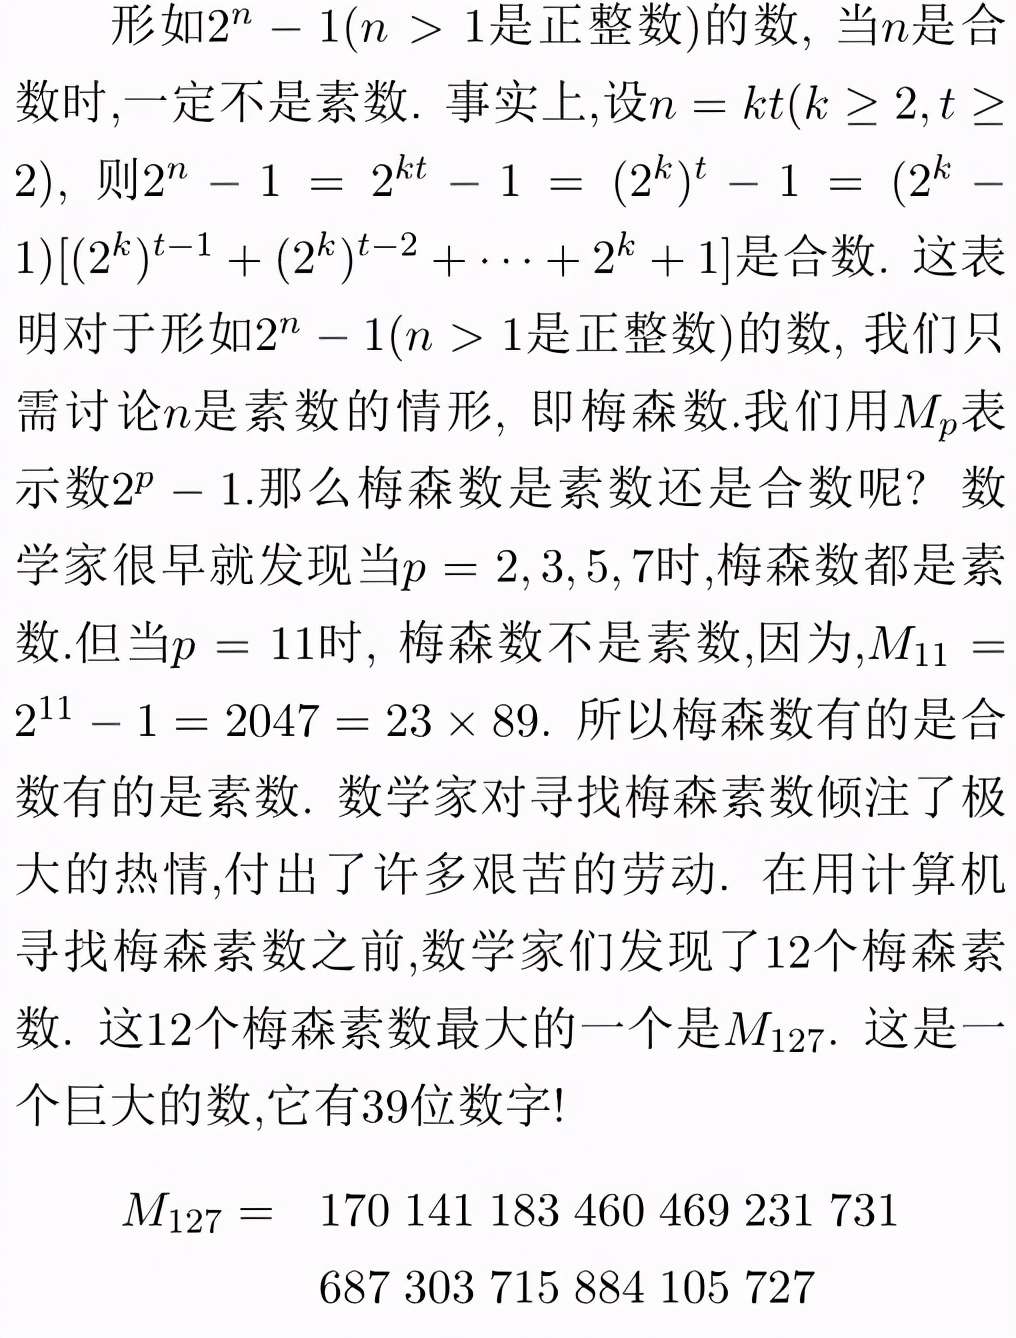 形如2ⁿ − 1(n > 1是正整数)的数, 当n是合
数时,一定不是素数. 事实上,设n = kt(k ≥ 2, t ≥
2), 则2ⁿ − 1 = 2ᵏᵗ − 1 = (2ᵏ)ᵗ − 1 = (2ᵏ −
1)[(2ᵏ)ᵗ⁻¹ + (2ᵏ)ᵗ⁻² + · · · + 2ᵏ + 1]是合数. 这表
明对于形如2ⁿ − 1(n > 1是正整数)的数, 我们只
需讨论n是素数的情形, 即梅森数.我们用Mₚ表
示数2ᵖ − 1.那么梅森数是素数还是合数呢? 数
学家很早就发现当p = 2, 3, 5, 7时,梅森数都是素
数.但当p = 11时, 梅森数不是素数,因为,M₁₁ =
2¹¹ − 1 = 2047 = 23 × 89. 所以梅森数有的是合
数有的是素数. 数学家对寻找梅森素数倾注了极
大的热情,付出了许多艰苦的劳动. 在用计算机
寻找梅森素数之前,数学家们发现了12个梅森素
数. 这12个梅森素数最大的一个是M₁₂₇. 这是一
个巨大的数,它有39位数字!
M₁₂₇ = 170 141 183 460 469 231 731
687 303 715 884 105 727